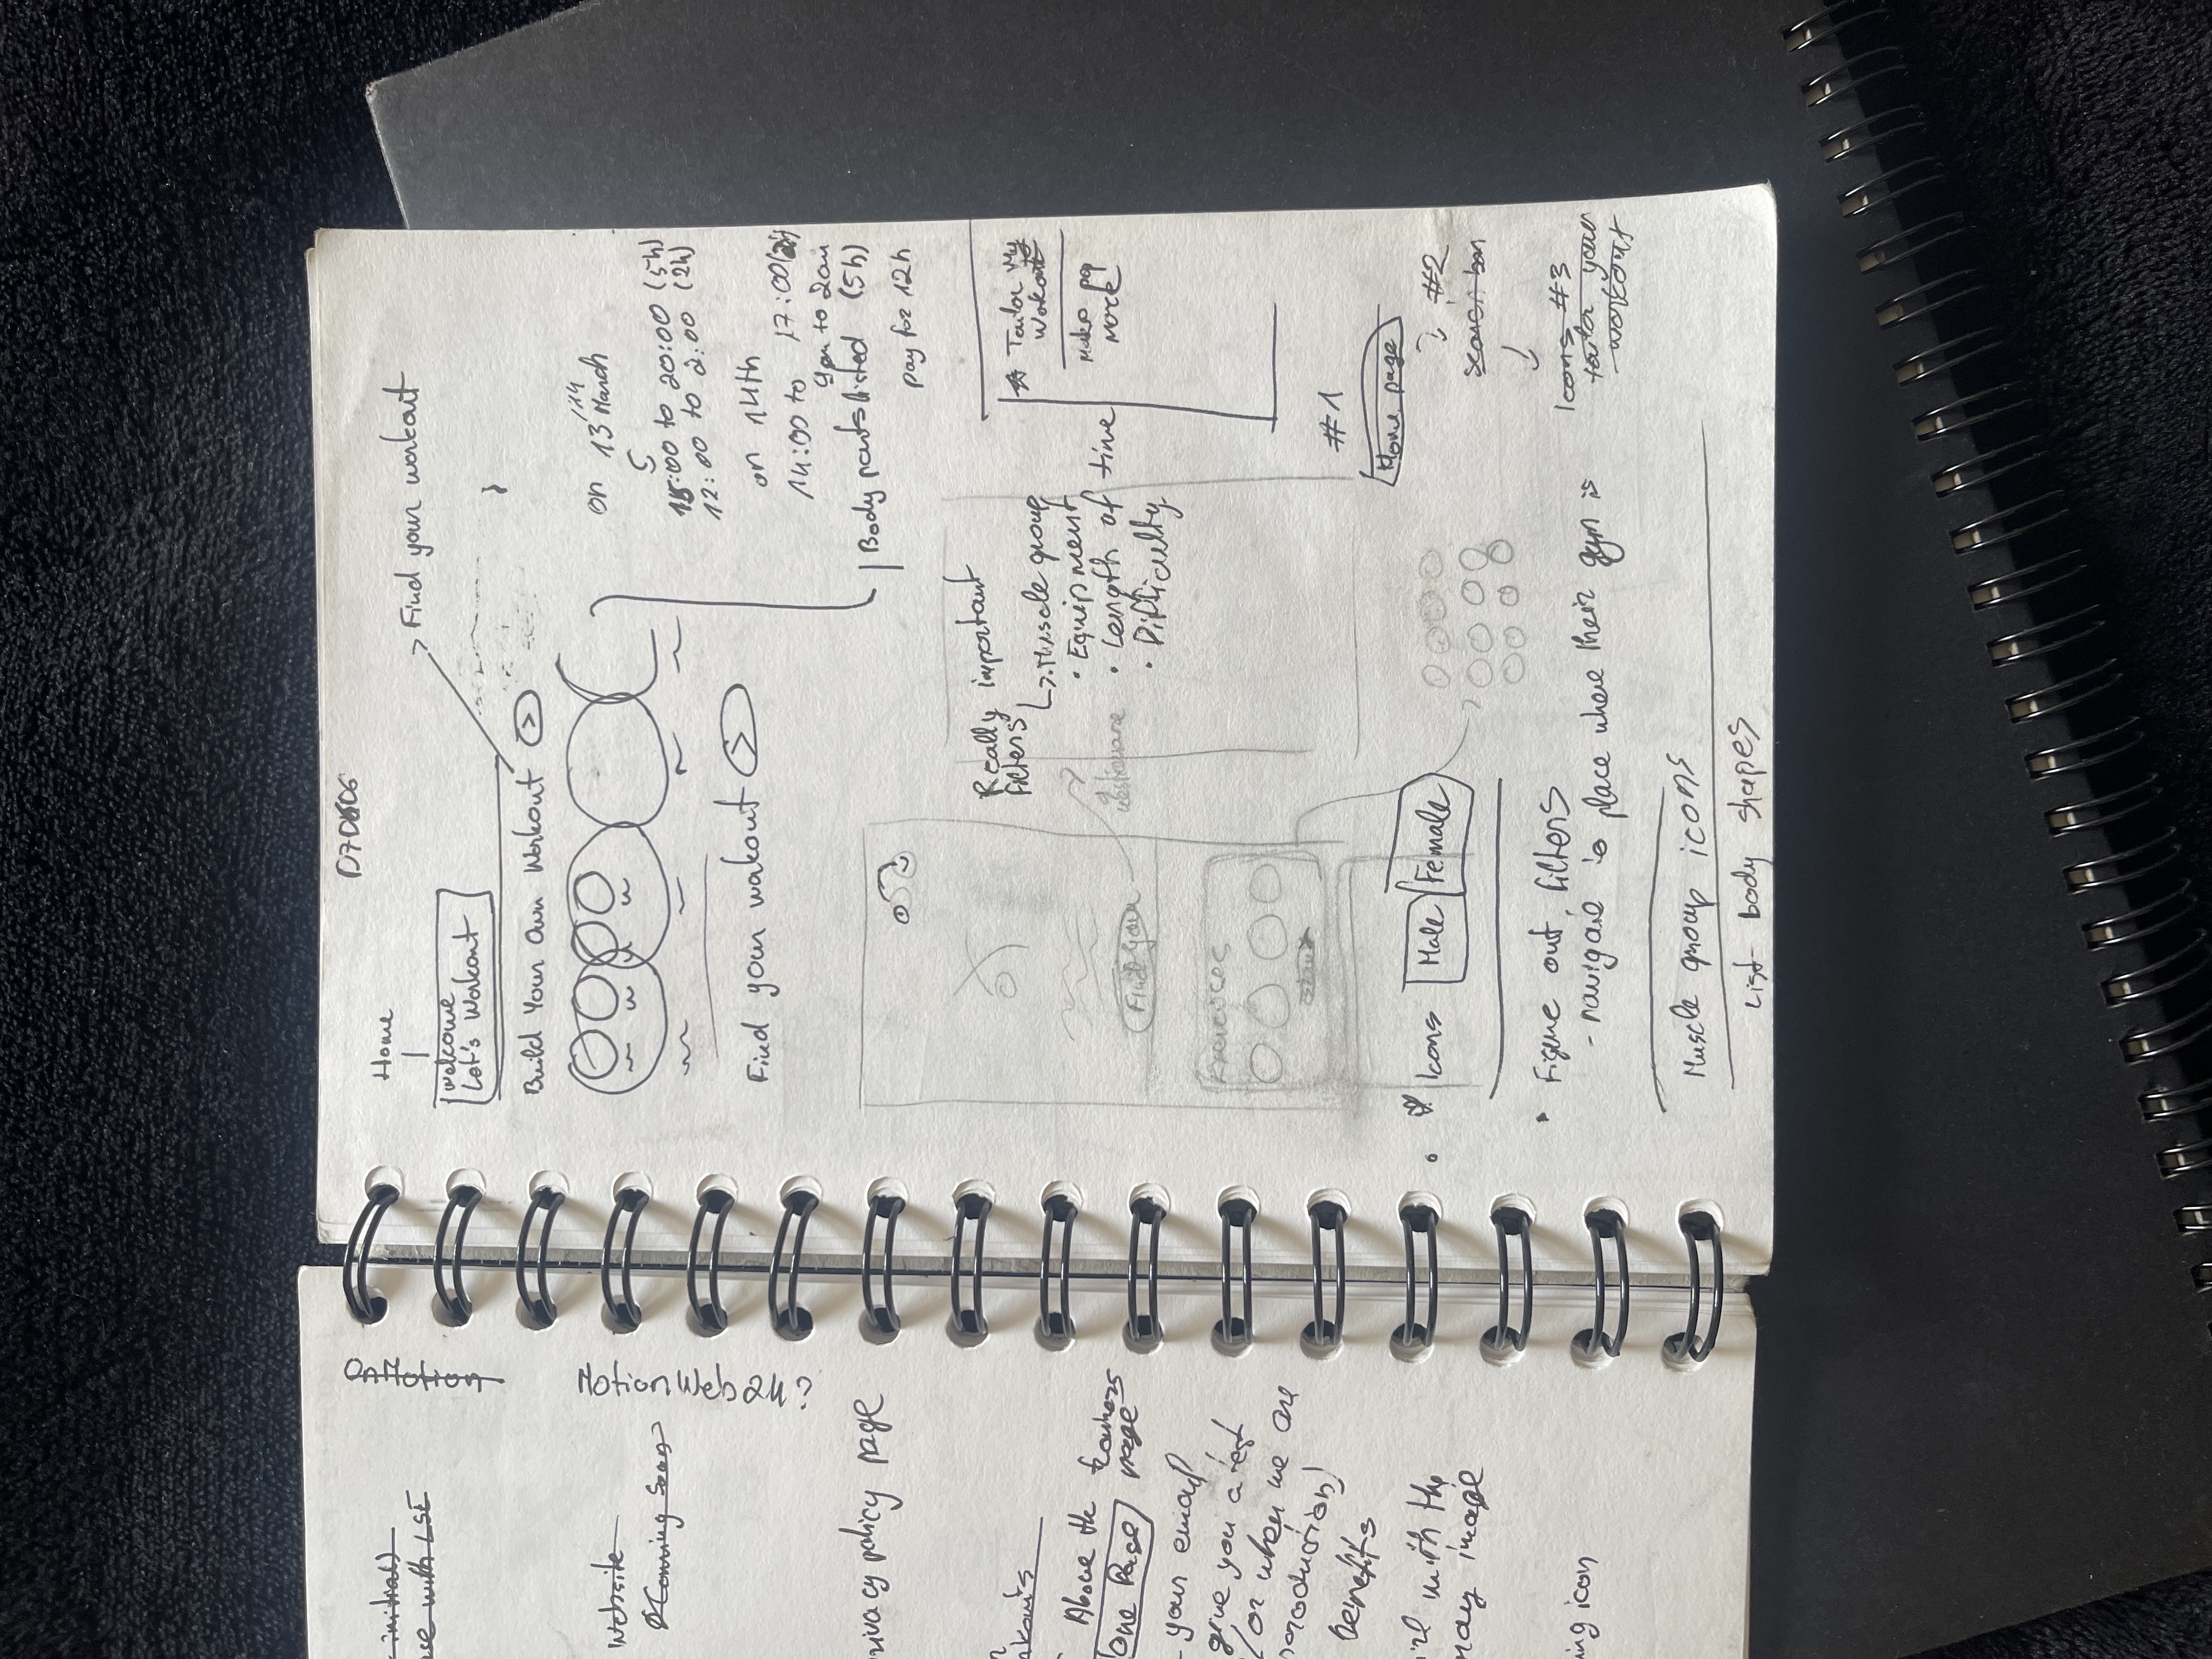 Home
Welcome
Let's Workout
> Find your workout
Build Your Own Workout >
on 13/14 March
15:00 to 20:00 (5h)
12:00 to 2:00 (2h)
on 14th
14:00 to 17:00
9pm to 2am
(5h)
Body parts listed
pay for 12h
Find your workout >
Really important
filters
↳ • Muscle group
• Equipment
• Length of time
• Difficulty
Tailor My
Workout
Make pop
more!
Find your
Exercises
#1
Home page
#2
Icons #3
tailor your
workout
• Icons Male Female
• Figure out filters
- navigate to place where their gym is
Muscle group icons
List body shapes
OnMotion
MotionWeb24?
website
Coming Soon
privacy policy page
Above the
One Page
your email
give you a
for when we are
production)
benefits
with the
image
icon